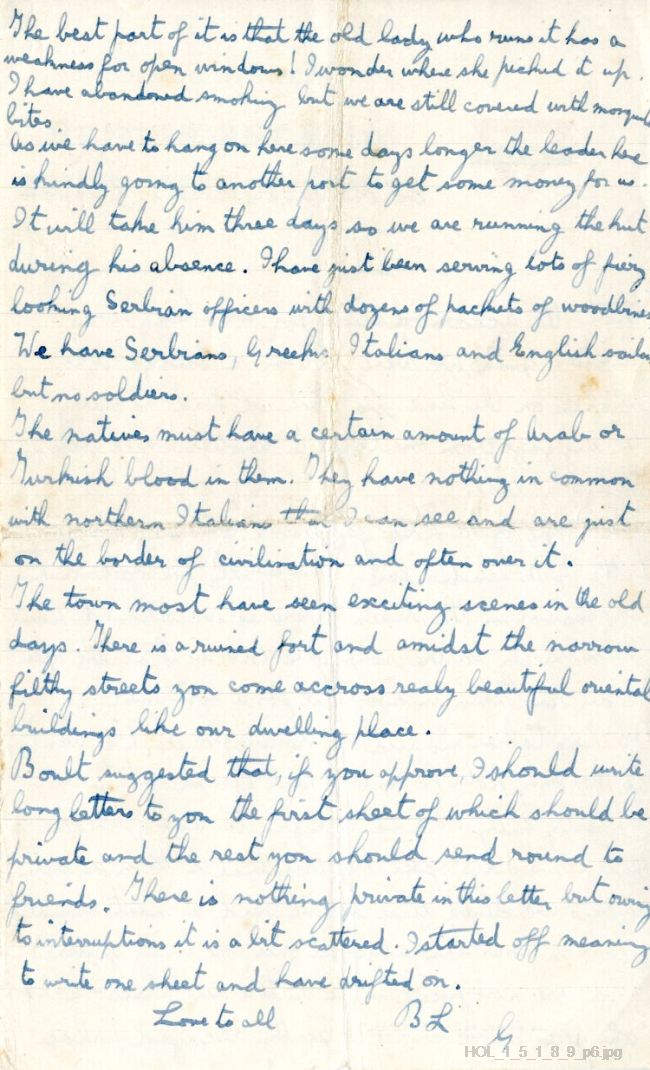 The best part of it is that the old lady who runs it has a
weakness for open windows! I wonder where she picked it up.
I have abandoned smoking but we are still covered with mosquito
bites.
As we have to hang on here some days longer the leader here
is kindly going to another port to get some money for us.
It will take him three days so we are running the hut
during his absence. I have just been serving lots of fiery
looking Serbian officers with dozens of packets of woodbines
We have Serbians, Greeks, Italians and English sailors
but no soldiers.
The natives must have a certain amount of Arab or
Turkish blood in them. They have nothing in common
with northern Italians that I can see and are just
on the border of civilisation and often over it.
The town most have seen exciting scenes in the old
days. There is a ruined fort and amidst the narrow
filthy streets you come accross realy beautiful oriental
buildings like our dwelling place.
Boult suggested that, if you approve, I should write
long letters to you the first sheet of which should be
private and the rest you should send round to
friends. There is nothing private in this letter but owing
to interruptions it is a bit scattered. I started off meaning
to write one sheet and have drifted on.
Love to all B L G
HOL_4_5_1_8_9_p6.jpg